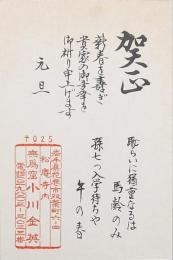 賀正
新春を寿ぎ
貴家の御多幸を
御祈り申上げます
元旦
恥らいに独り重なるは
馬齢のみ
孫七つ入学待ちや
午の春
〒025
岩手県花巻市双葉町六ー四
松庵寺内
無馬窓 小川金英